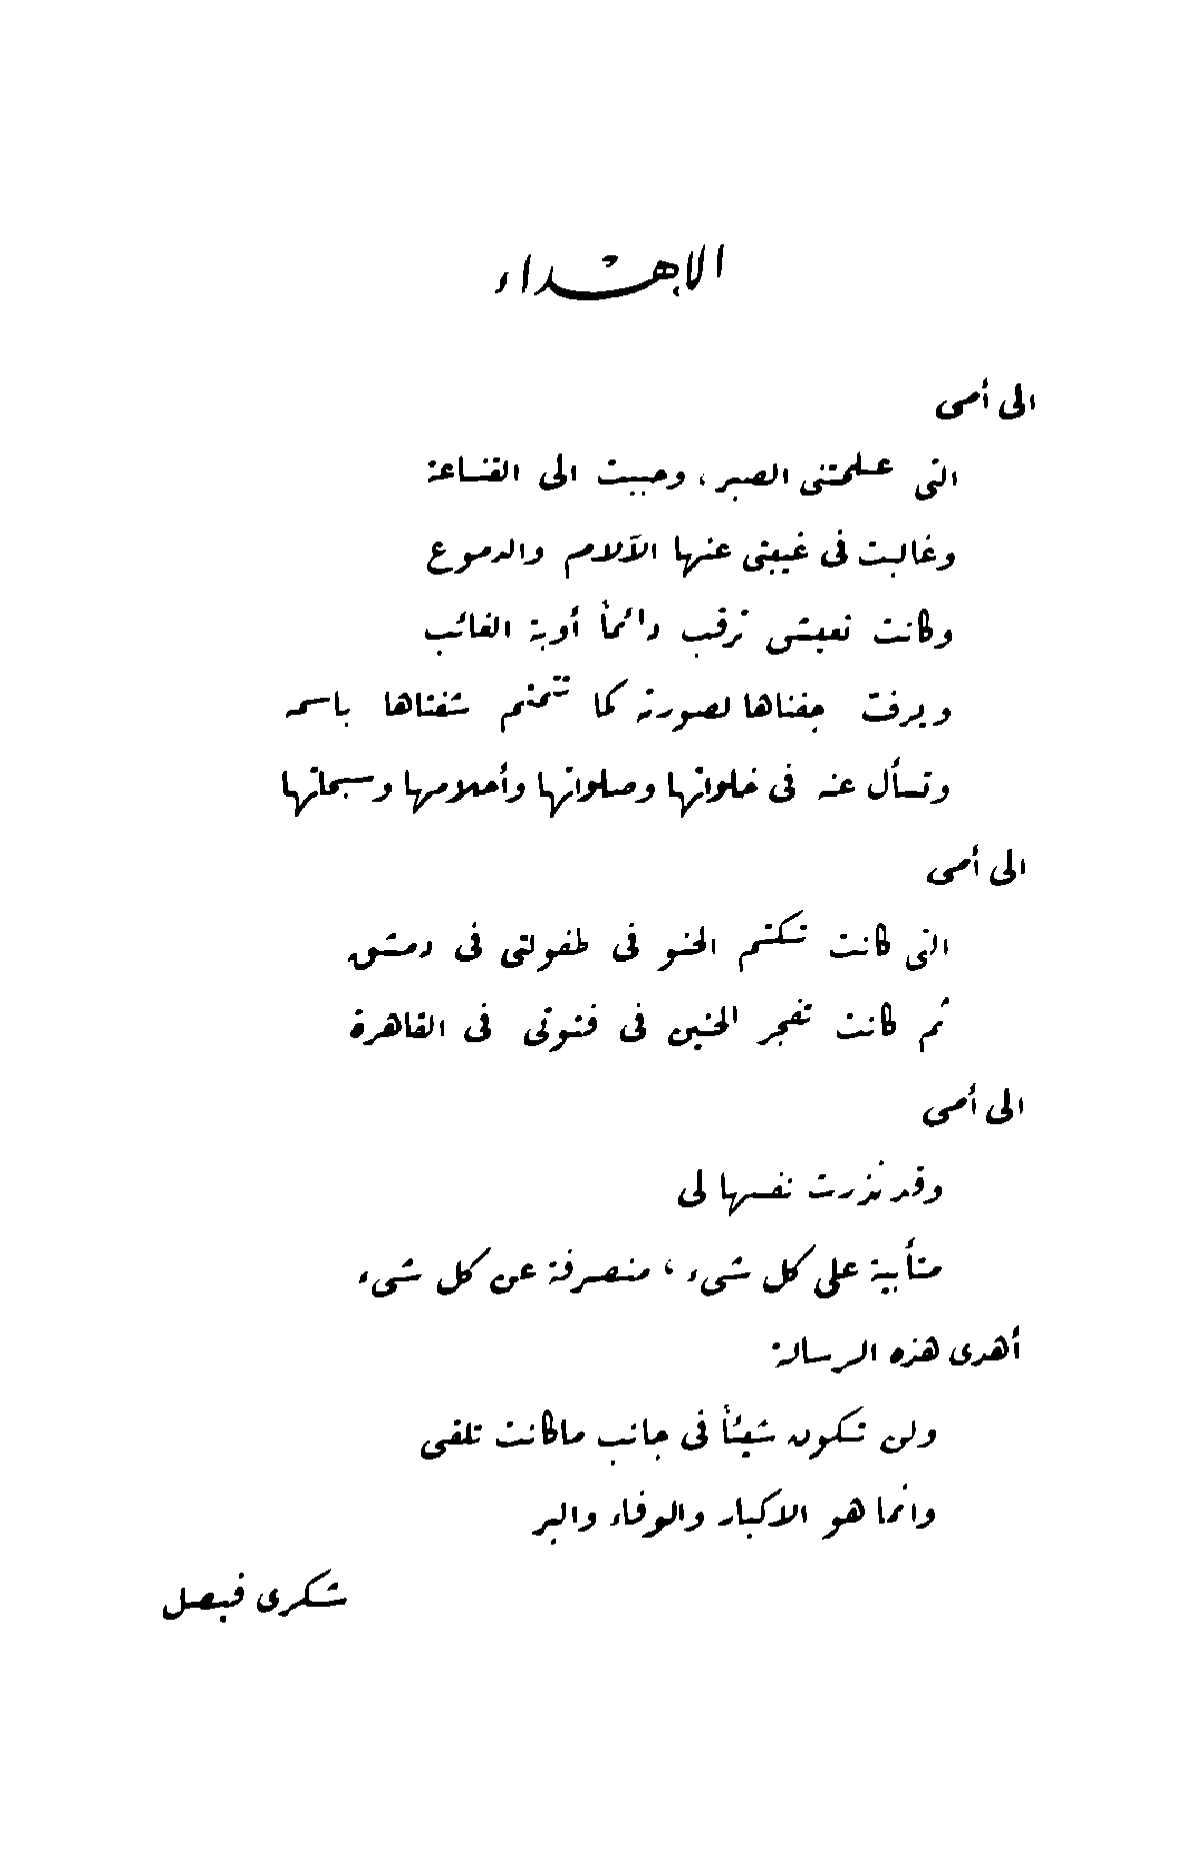 الاهداء
الى أمى
التى علمتنى الصبر، وحببت الى القناعة
وغالبت فى غيبتى عنها الآلام والدموع
وكانت تعيش ترقب دائماً أوبة الغائب
ويرفت جفناها لصورته كما تتمتم شفتاها باسمه
وتسأل عنه فى خلواتها وصلواتها وأحلامها وسبحاتها
الى أمى
التى كانت تكتم الحنو فى طفولتى فى دمشق
ثم كانت تفجر الحنين فى فتوتى فى القاهرة
الى أمى
وقد نذرت نفسها لى
متأبية على كل شىء، منصرفة عن كل شىء
أهدى هذه الرسالة
ولن تكون شيئاً فى جانب ماكانت تلقى
وانما هو الاكبار والوفاء والبر
شكرى فيصل